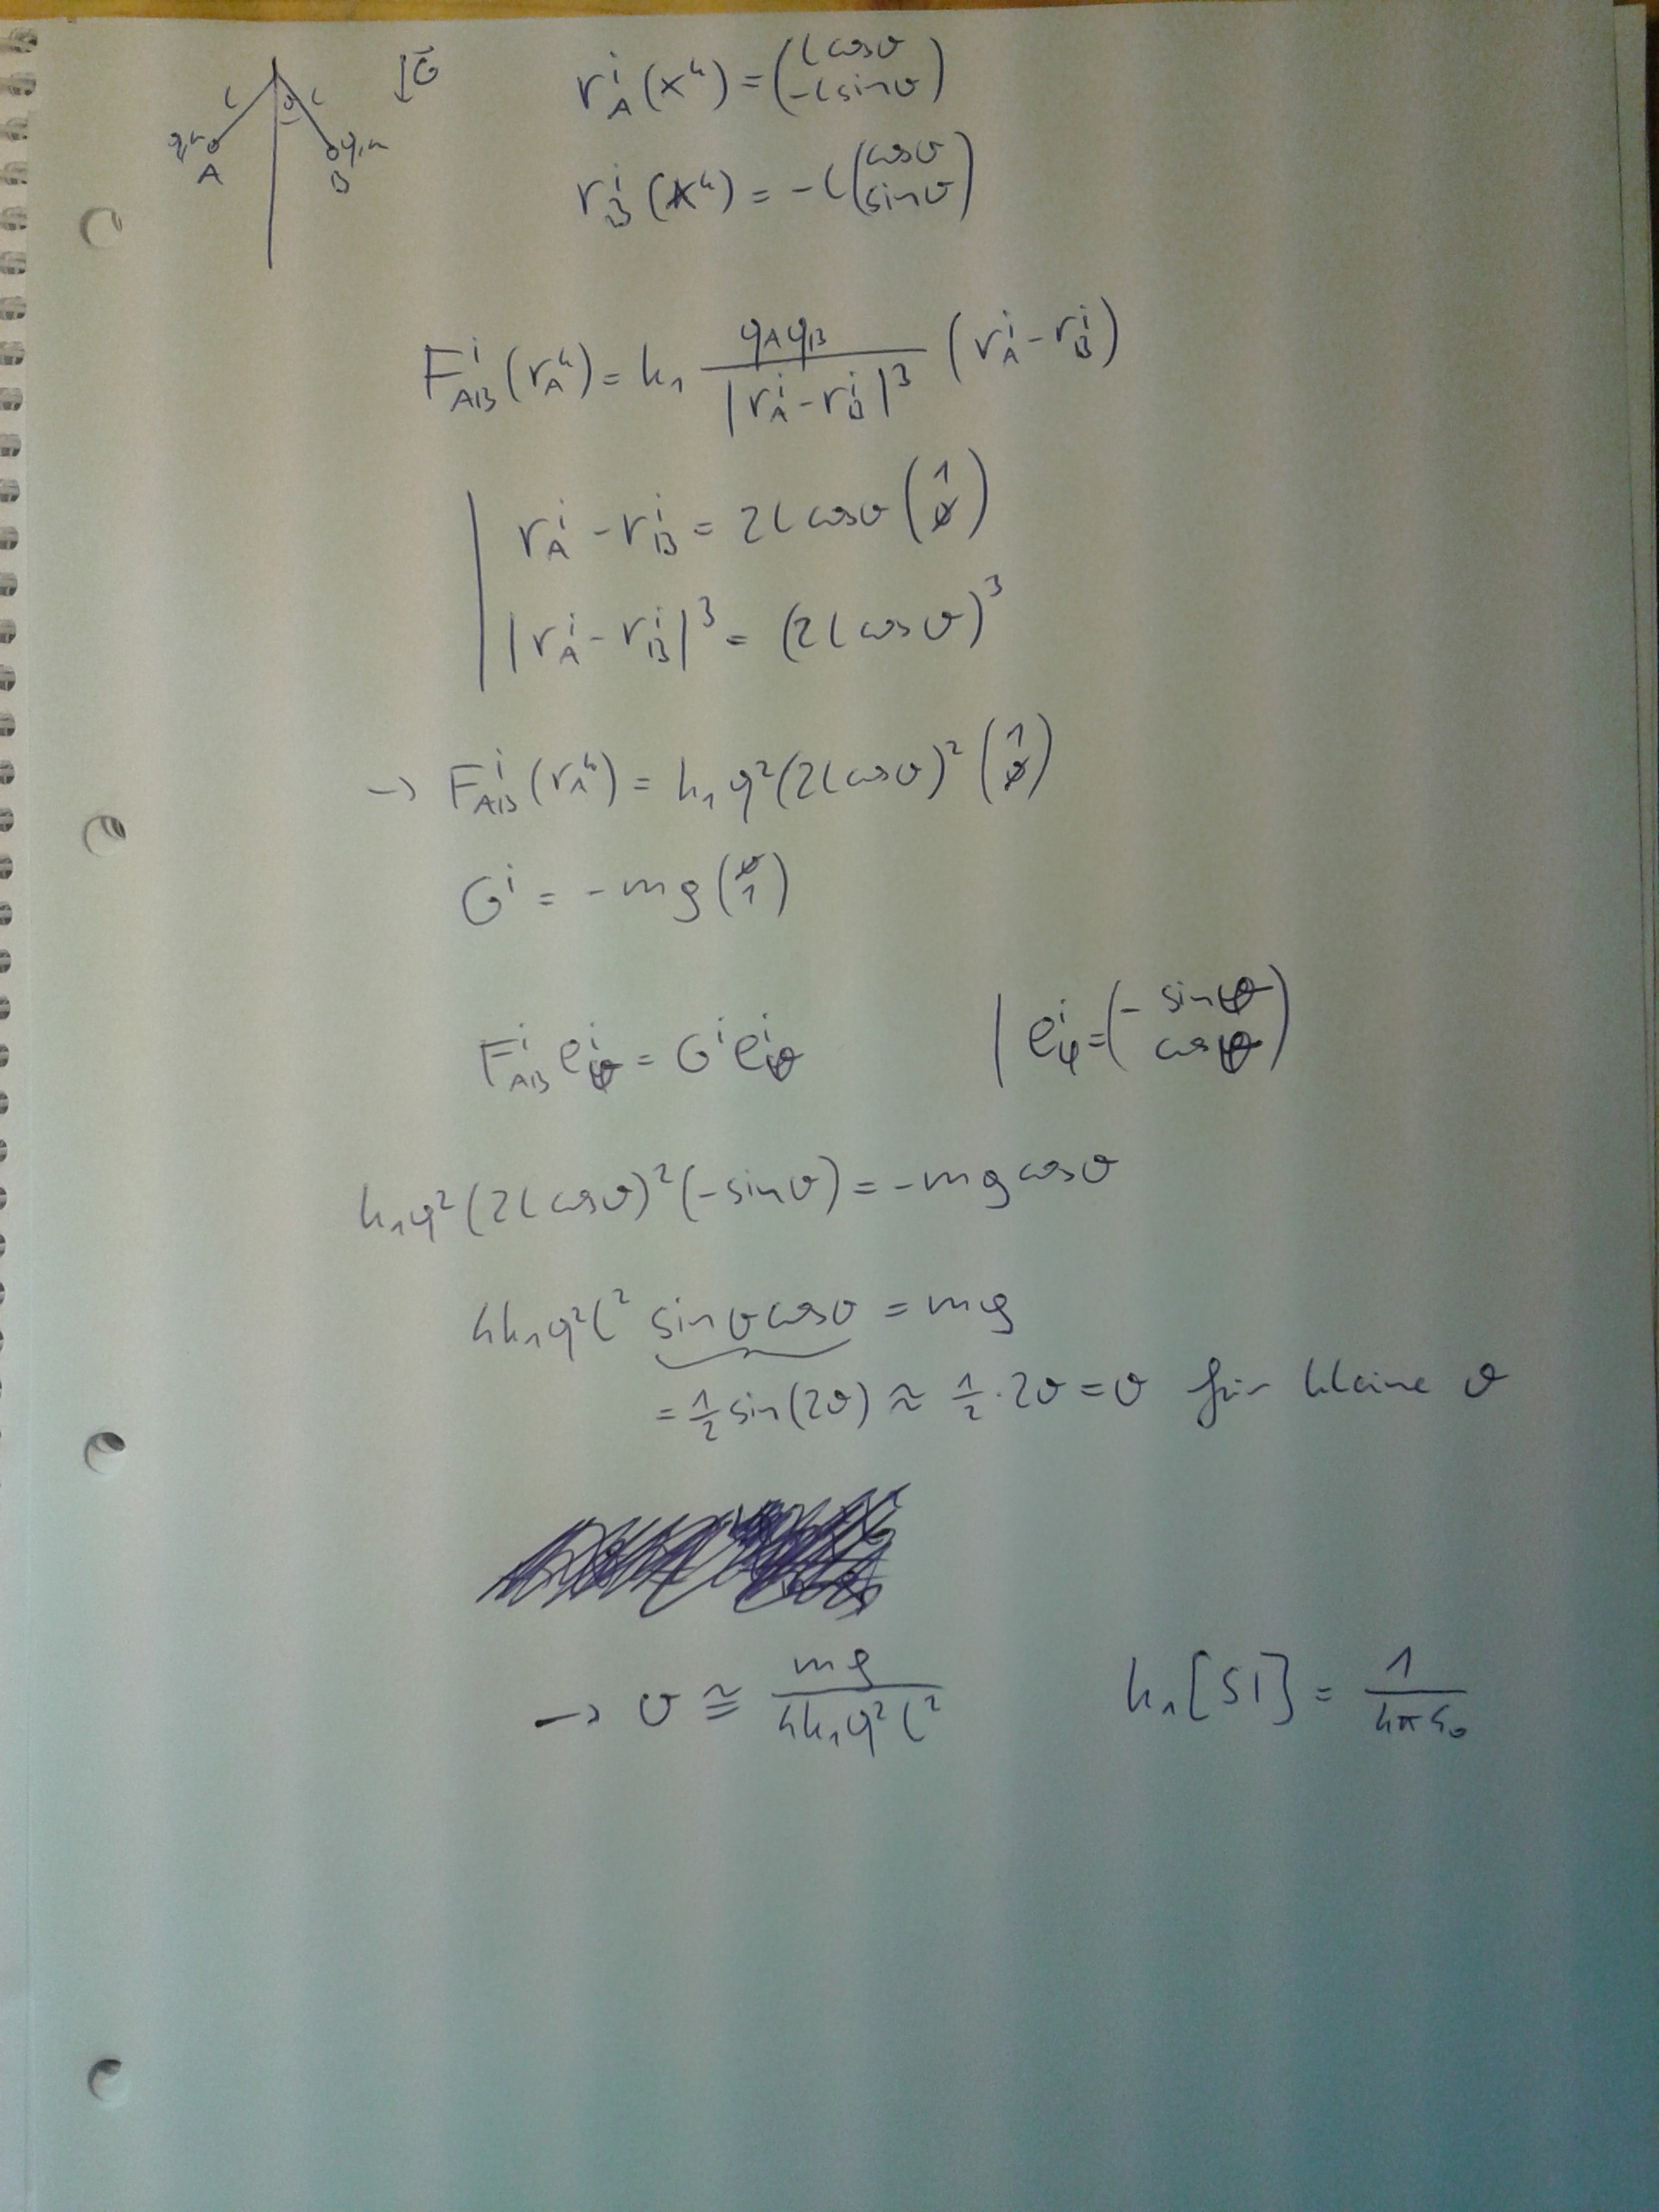 l l ϑ ↓G⃗
q,m A q,m B
r_A^i(x^k) = (l cosϑ / -l sinϑ)
r_B^i(x^k) = -l (cosϑ / sinϑ)
F_AB^i(r_A^k) = k₁ q_A q_B / |r_A^i - r_B^i|³ (r_A^i - r_B^i)
| r_A^i - r_B^i = 2l cosϑ (1 / 0)
| |r_A^i - r_B^i|³ = (2l cosϑ)³
→ F_AB^i(r_A^k) = k₁ q² (2l cosϑ)² (1 / 0)
G^i = -mg (0 / 1)
F_AB^i e_φ^i = G^i e_φ^i | e_φ^i = (-sinϑ / cosϑ)
k₁q²(2l cosϑ)²(-sinϑ) = -mg cosϑ
4k₁q²l² sinϑ cosϑ = mg
= ½ sin(2ϑ) ≈ ½·2ϑ = ϑ für kleine ϑ
→ ϑ ≅ mg / 4k₁q²l² k₁[SI] = 1 / 4πε₀